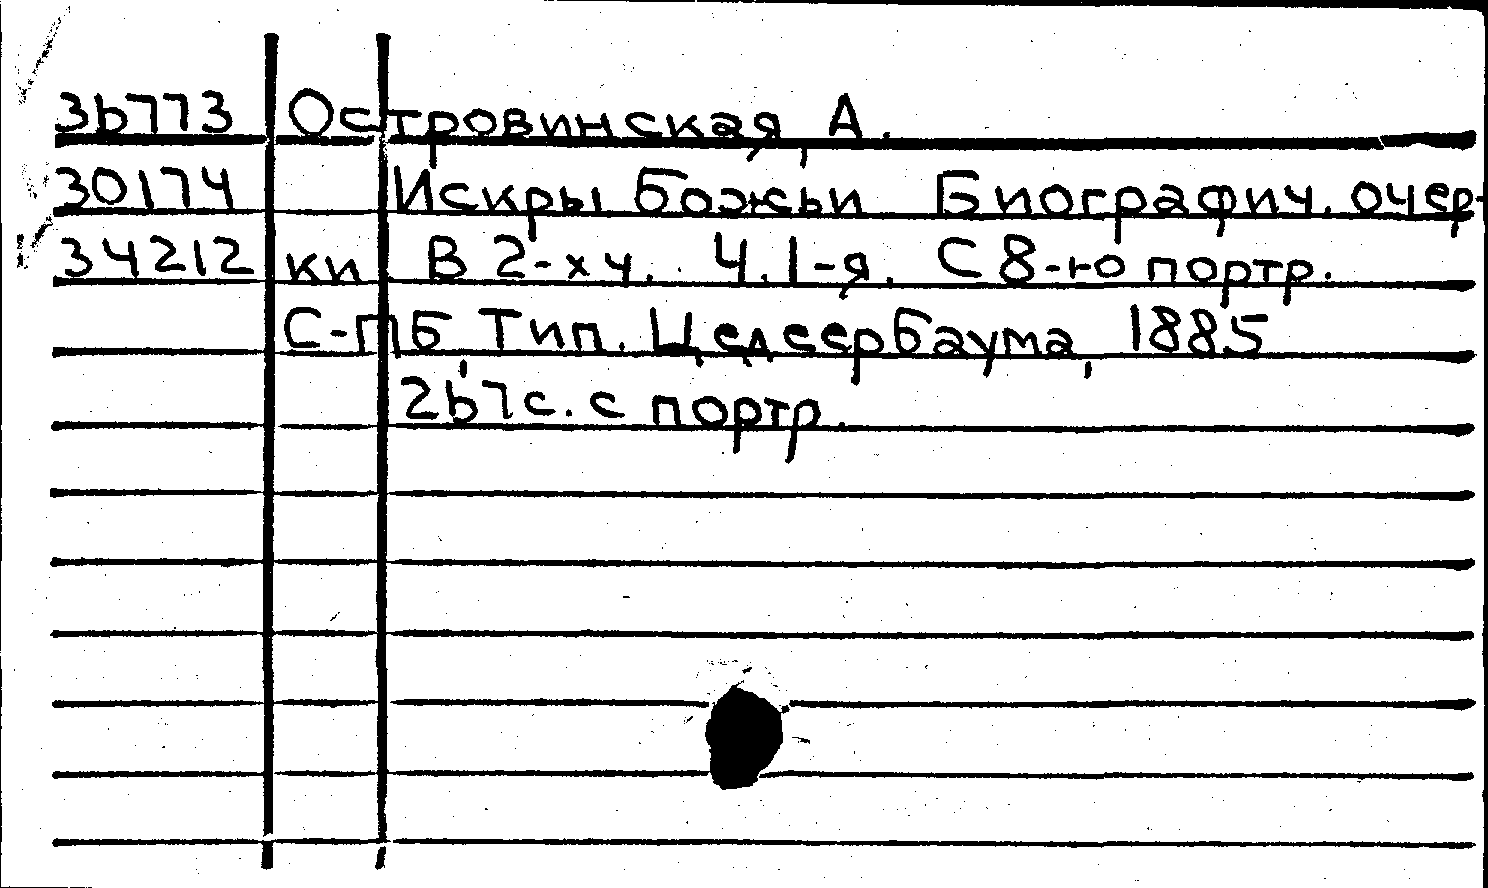 36773 Островинская, А.
30174 Искры божьи Биографич. очер-
34212 ки. В 2-х ч. Ч. 1-я. С 8-ю портр.
С-ПБ, Тип. Цедсербаума, 1885
267 с. с портр.